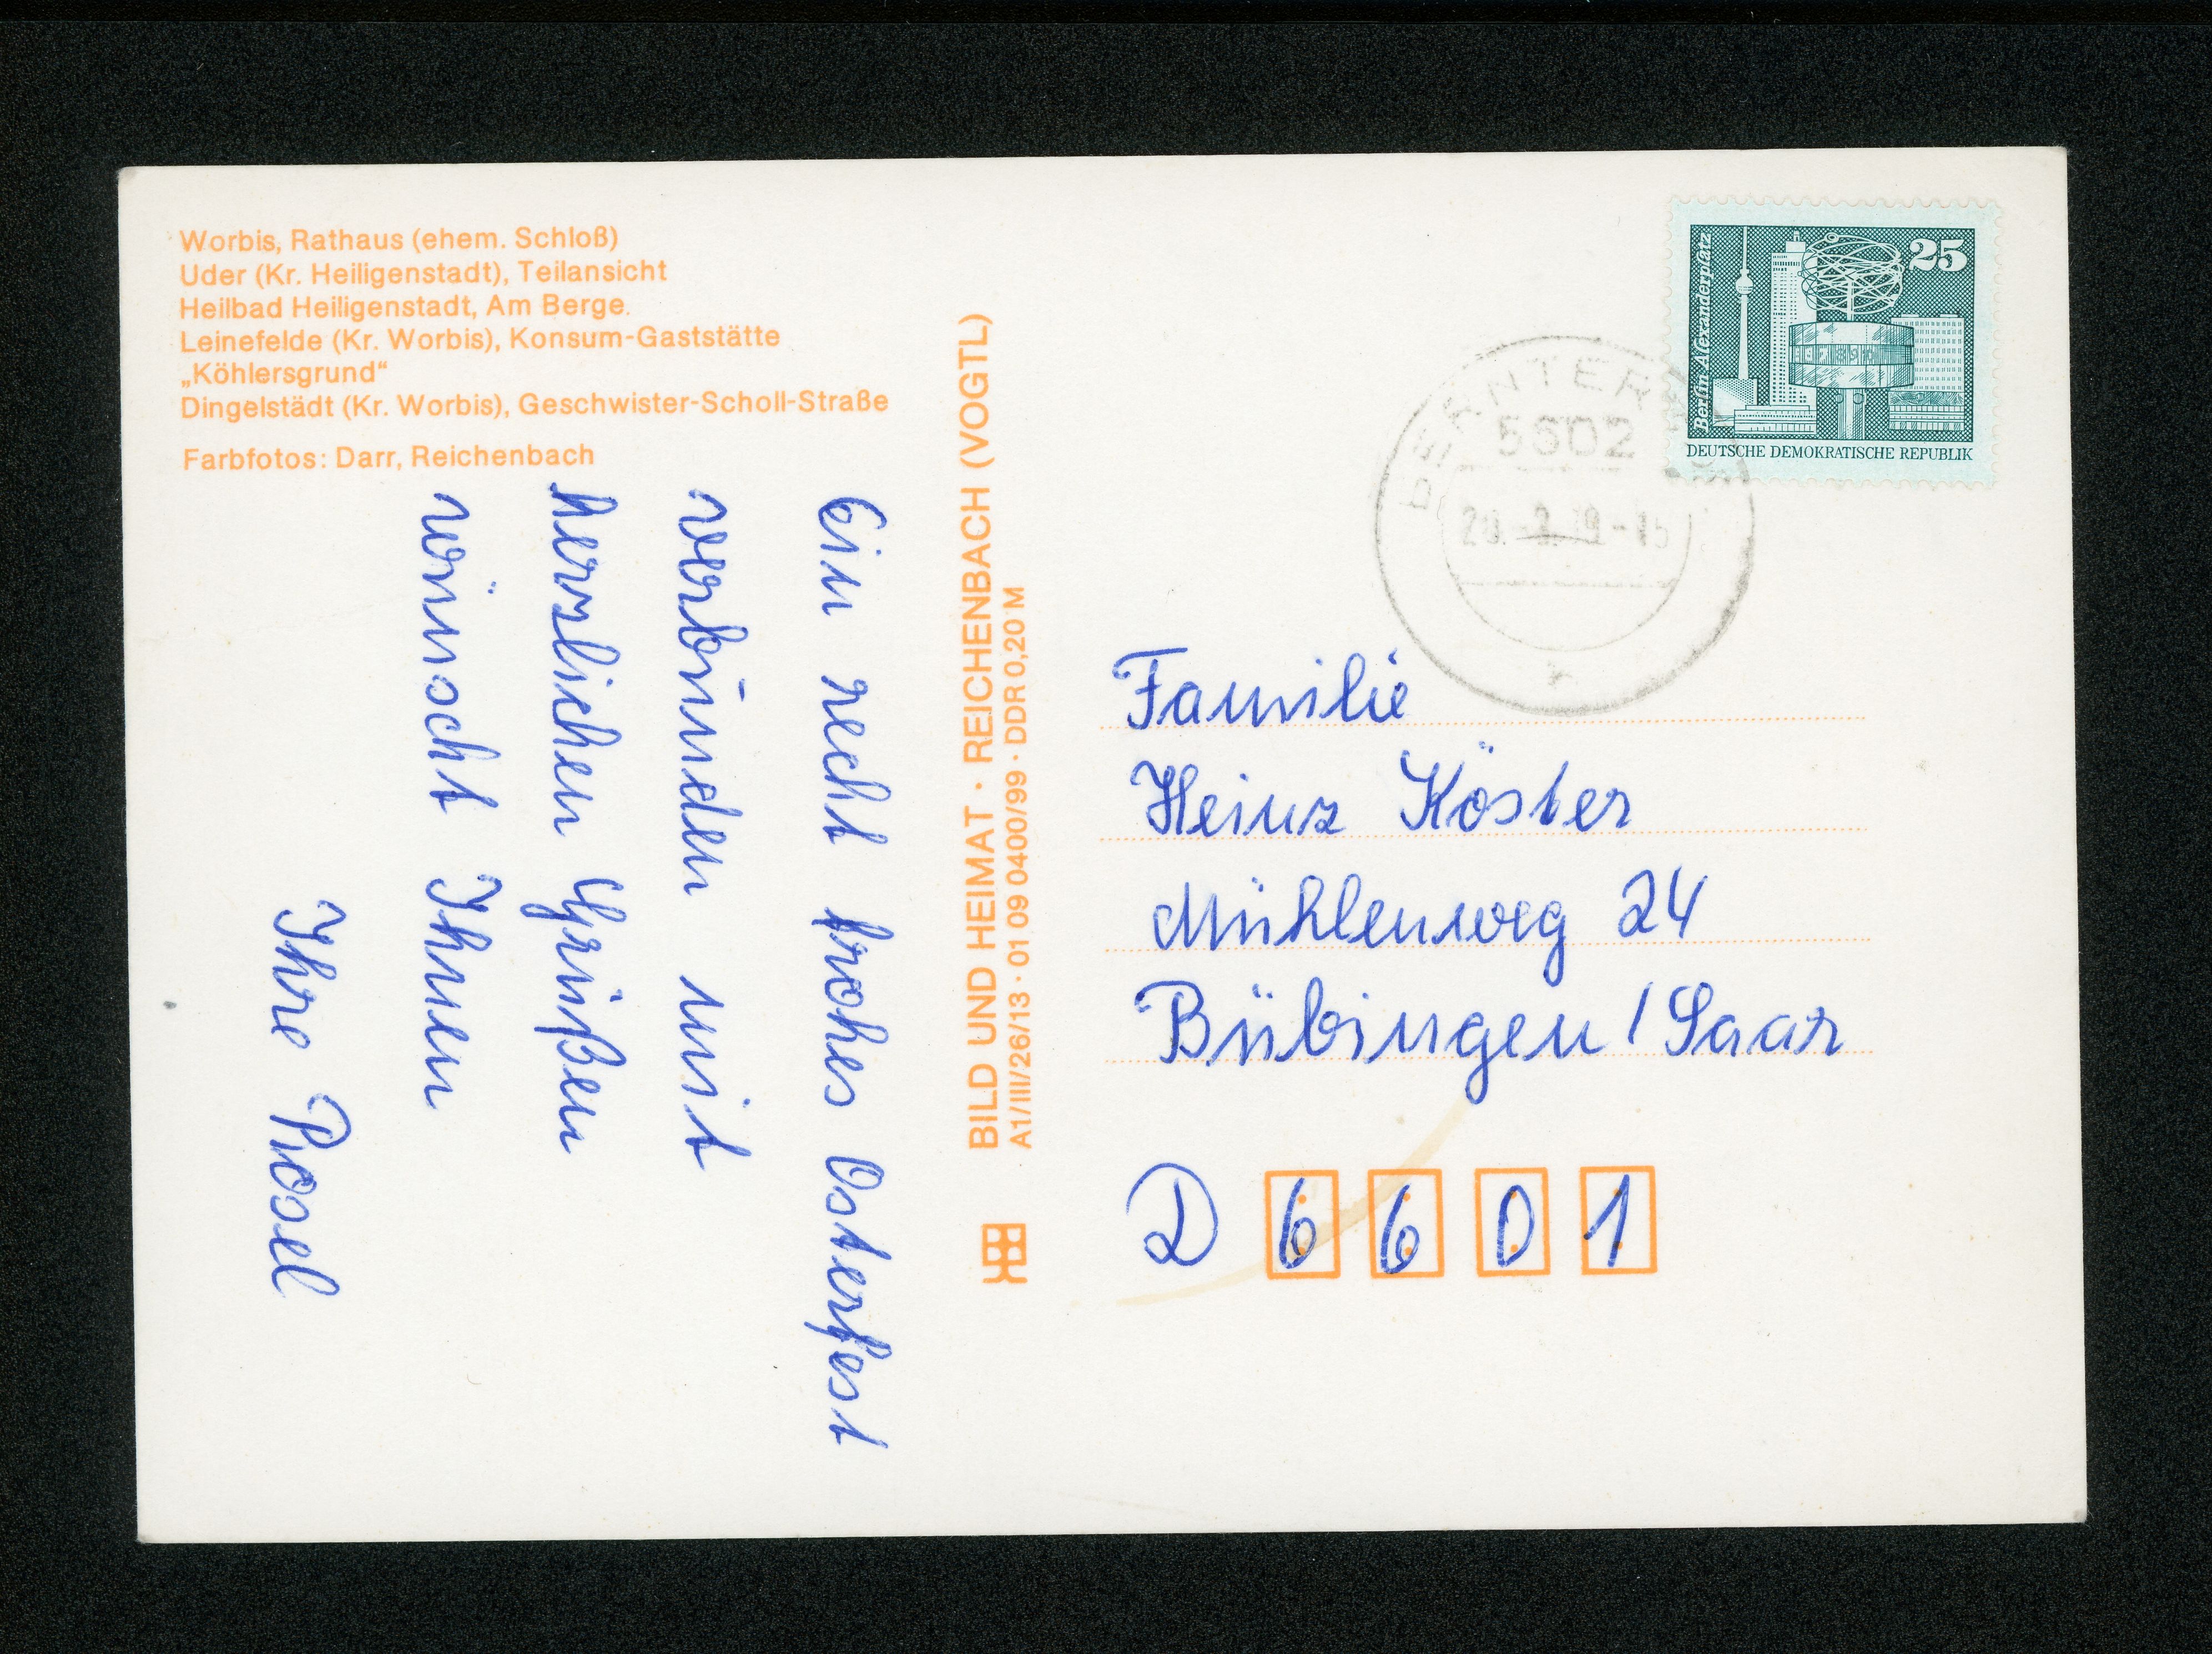 Worbis, Rathaus (ehem. Schloß)
Uder (Kr. Heiligenstadt), Teilansicht
Heilbad Heiligenstadt, Am Berge.
Leinefelde (Kr. Worbis), Konsum-Gaststätte
„Köhlersgrund“
Dingelstädt (Kr. Worbis), Geschwister-Scholl-Straße
Farbfotos: Darr, Reichenbach
Ein recht frohes Osterfest
verbunden mit
herzlichen Grüßen
wünscht Ihnen
Ihre Rosel
BILD UND HEIMAT · REICHENBACH (VOGTL)
A1/III/26/13 · 01 09 0400/99 · DDR 0,20 M
Berlin Alexanderplatz
25
DEUTSCHE DEMOKRATISCHE REPUBLIK
5602
Familie
Heinz Köster
Mühlenweg 24
Bübingen / Saar
D 6601